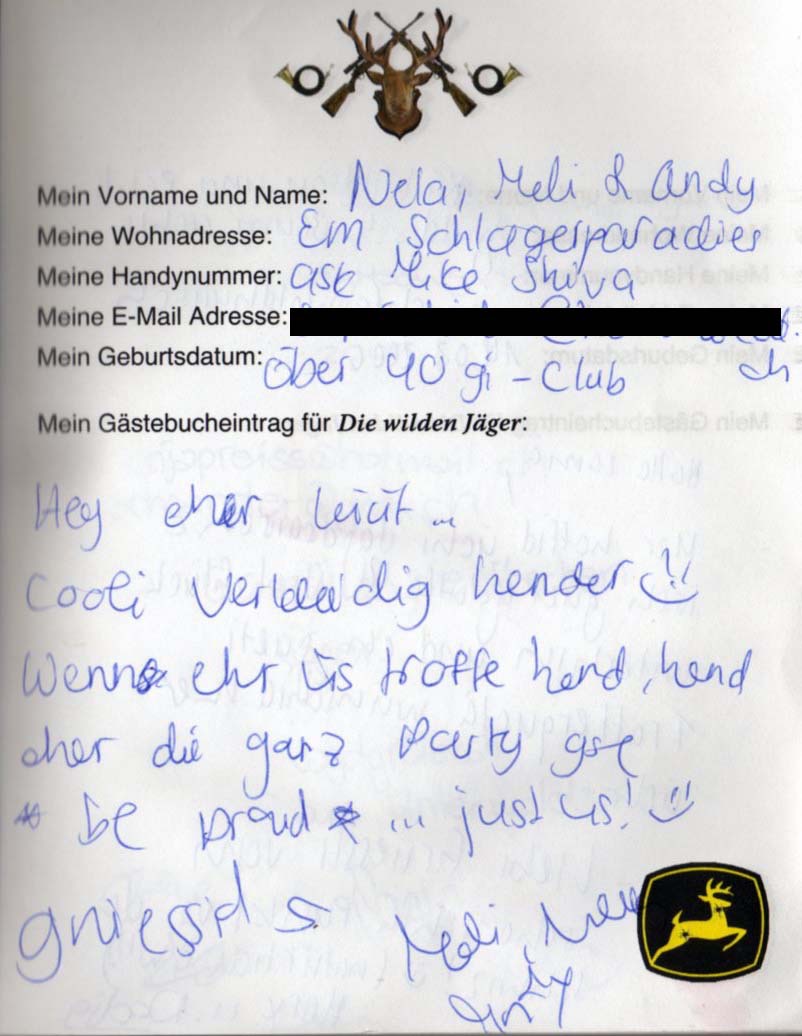 Mein Vorname und Name: Nela, Meli & Andy
Meine Wohnadresse: Em Schlagerparadies
Meine Handynummer: ask Mike Shiva
Meine E-Mail Adresse:
ch
Mein Geburtsdatum: öber 40gi-Club
Mein Gästebucheintrag für Die wilden Jäger:
Hey eher
Cooli hender
Wenn ehr üs troffe hend, hend
eher die ganz Party gse
be proud ... just us!
gniessid s
Meli, Nela
Andy